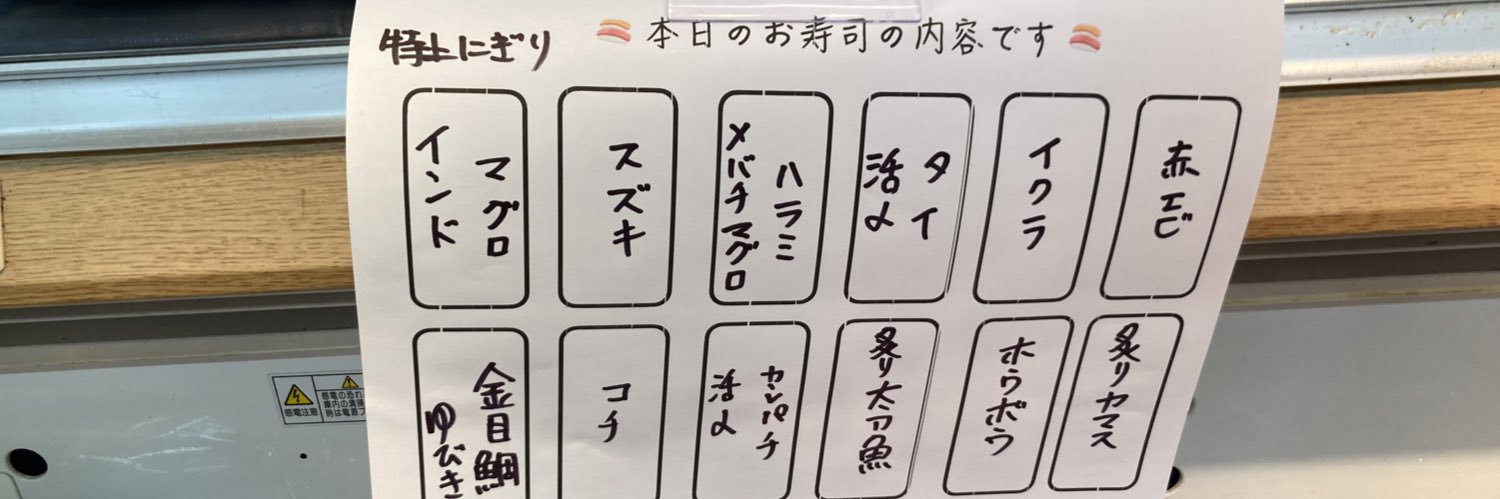 特上にぎり
本日のお寿司の内容です
マグロ
インド
スズキ
ハラミ
メバチマグロ
タイ
活〆
イクラ
赤エビ
金目鯛
ゆびき
コチ
カンパチ
活〆
炙り太刀魚
ホウボウ
炙りカマス
感電注意
感電の恐れ
庫内の清掃
時は電源プ